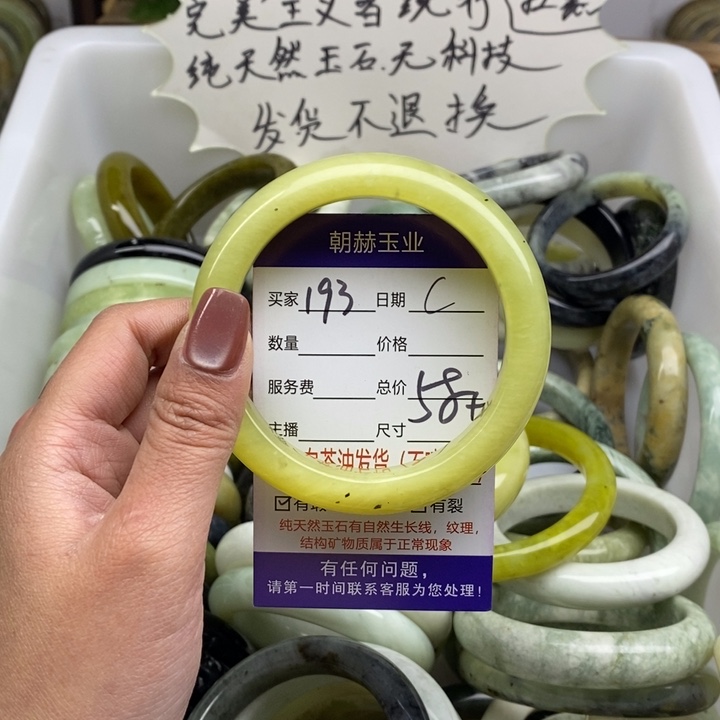 完美主义者绕行
纯天然玉石.无科技
发货不退换
朝赫玉业
买家 193 日期 C
数量 价格
服务费 总价 58
主播 尺寸
茶油发货
有 有裂
纯天然玉石有自然生长线，纹理，
结构矿物质属于正常现象
有任何问题，
请第一时间联系客服为您处理！